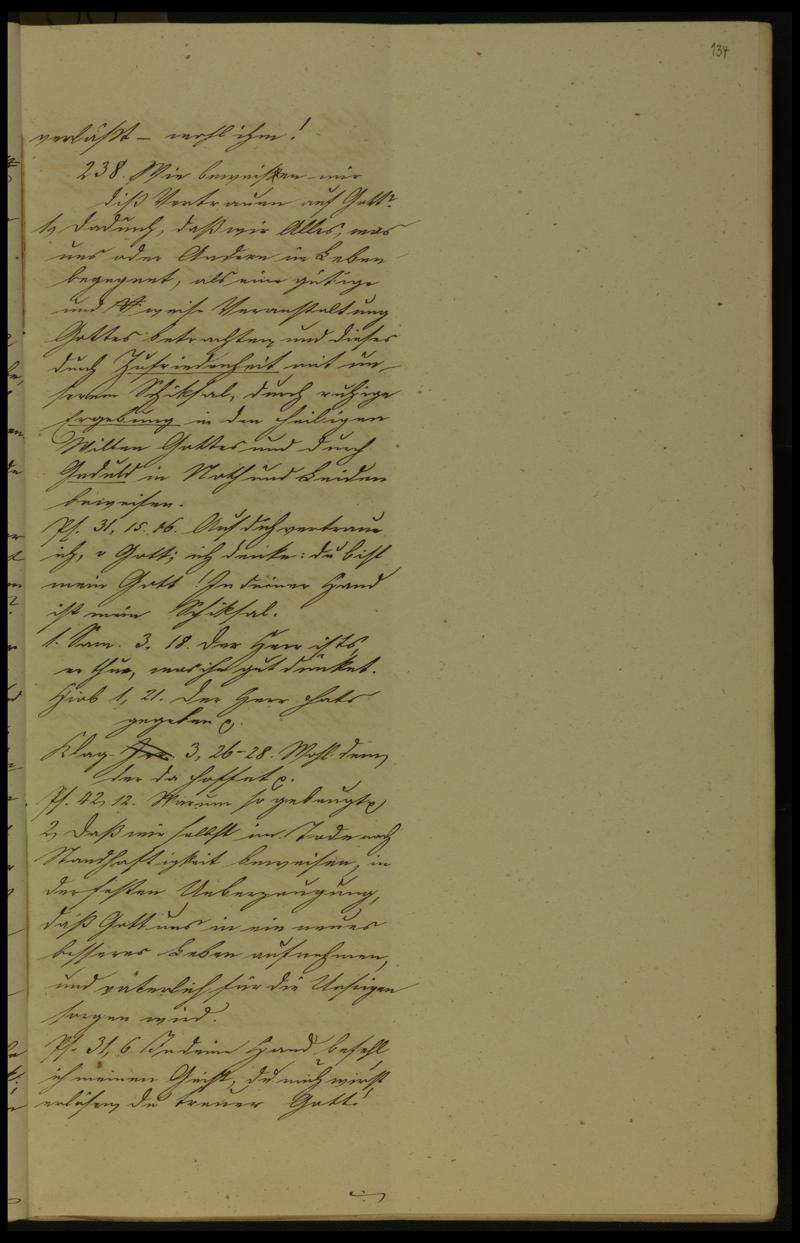 134
verläßt – wohl ihm!
238. Wie beweisen wir
diß Vertrauen auf Gott?
1, Dadurch, daß wir Alles, was
uns oder Andern im Leben
begegnet, als eine gütige
und weise Veranstaltung
Gottes betrachten, und dieses
durch Zufriedenheit mit un-
serem Schiksal, durch ruhige
Ergebung in den heiligen
Willen Gottes und durch
Geduld in Noth und Leiden
beweisen.
Ps. 31, 15. 16. Auf dich vertraue
ich, o Gott; ich denke: du bist
mein Gott! In deiner Hand
ist mein Schiksal.
1. Sam. 3, 18. Der Herr ists,
er thue, was ihm gut dünket.
Hiob 1, 21. Der Herr hats
gegeben
Klag. 3, 26-28. Wohl dem,
der da hoffet
Ps. 42, 12. Warum so gebeugt
2, Daß wir selbst im Tode noch
Standhaftigkeit beweisen, in
der festen Ueberzeugung,
daß Gott uns in ein neues
besseres Leben aufnehmen,
und väterlich für die Unsrigen
sorgen wird.
Ps. 31, 6. In deine Hand befehl
ich meinen Geist, du mich wirst
erlösen, du treuer Gott!